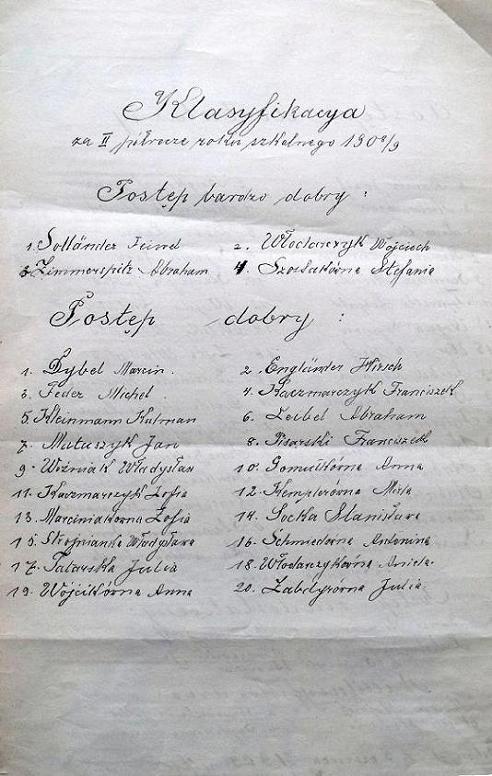 Klasyfikacya
za II półrocze roku szkolnego 1908/9
Postęp bardzo dobry:
1. Holländer Feiwel 2. Włodarczyk Wojciech
3. Zimmerspitz Abraham 4. Szostakówna Stefania
Postęp dobry:
1. Dybel Marcin. 2. Engländer Hirsch
3. Feder Michel. 4. Kaczmarczyk Franciszek
5. Kleinmann Kalman 6. Leibel Abraham
7. Matuszyk Jan 8. Pisarski Franciszek
9. Woźniak Władysław 10. Gomułkówna Anna
11. Kaczmarczyk Zofia 12. Kemplerówna
13. Marciniakówna Zofia 14. Socka Stanisława
15. Władysława 16. Schmiedówna Antonina
17. Tatarska Julia 18. Włodarczykówna Aniela
19. Wójcikówna Anna 20. Julia